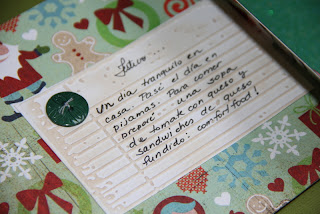 Un día tranquilo en
casa. Pasé el día en
pijamas. Para comer
preparé una sopa
de tomate con queso y
sandwiches de queso
fundido: comfort food!